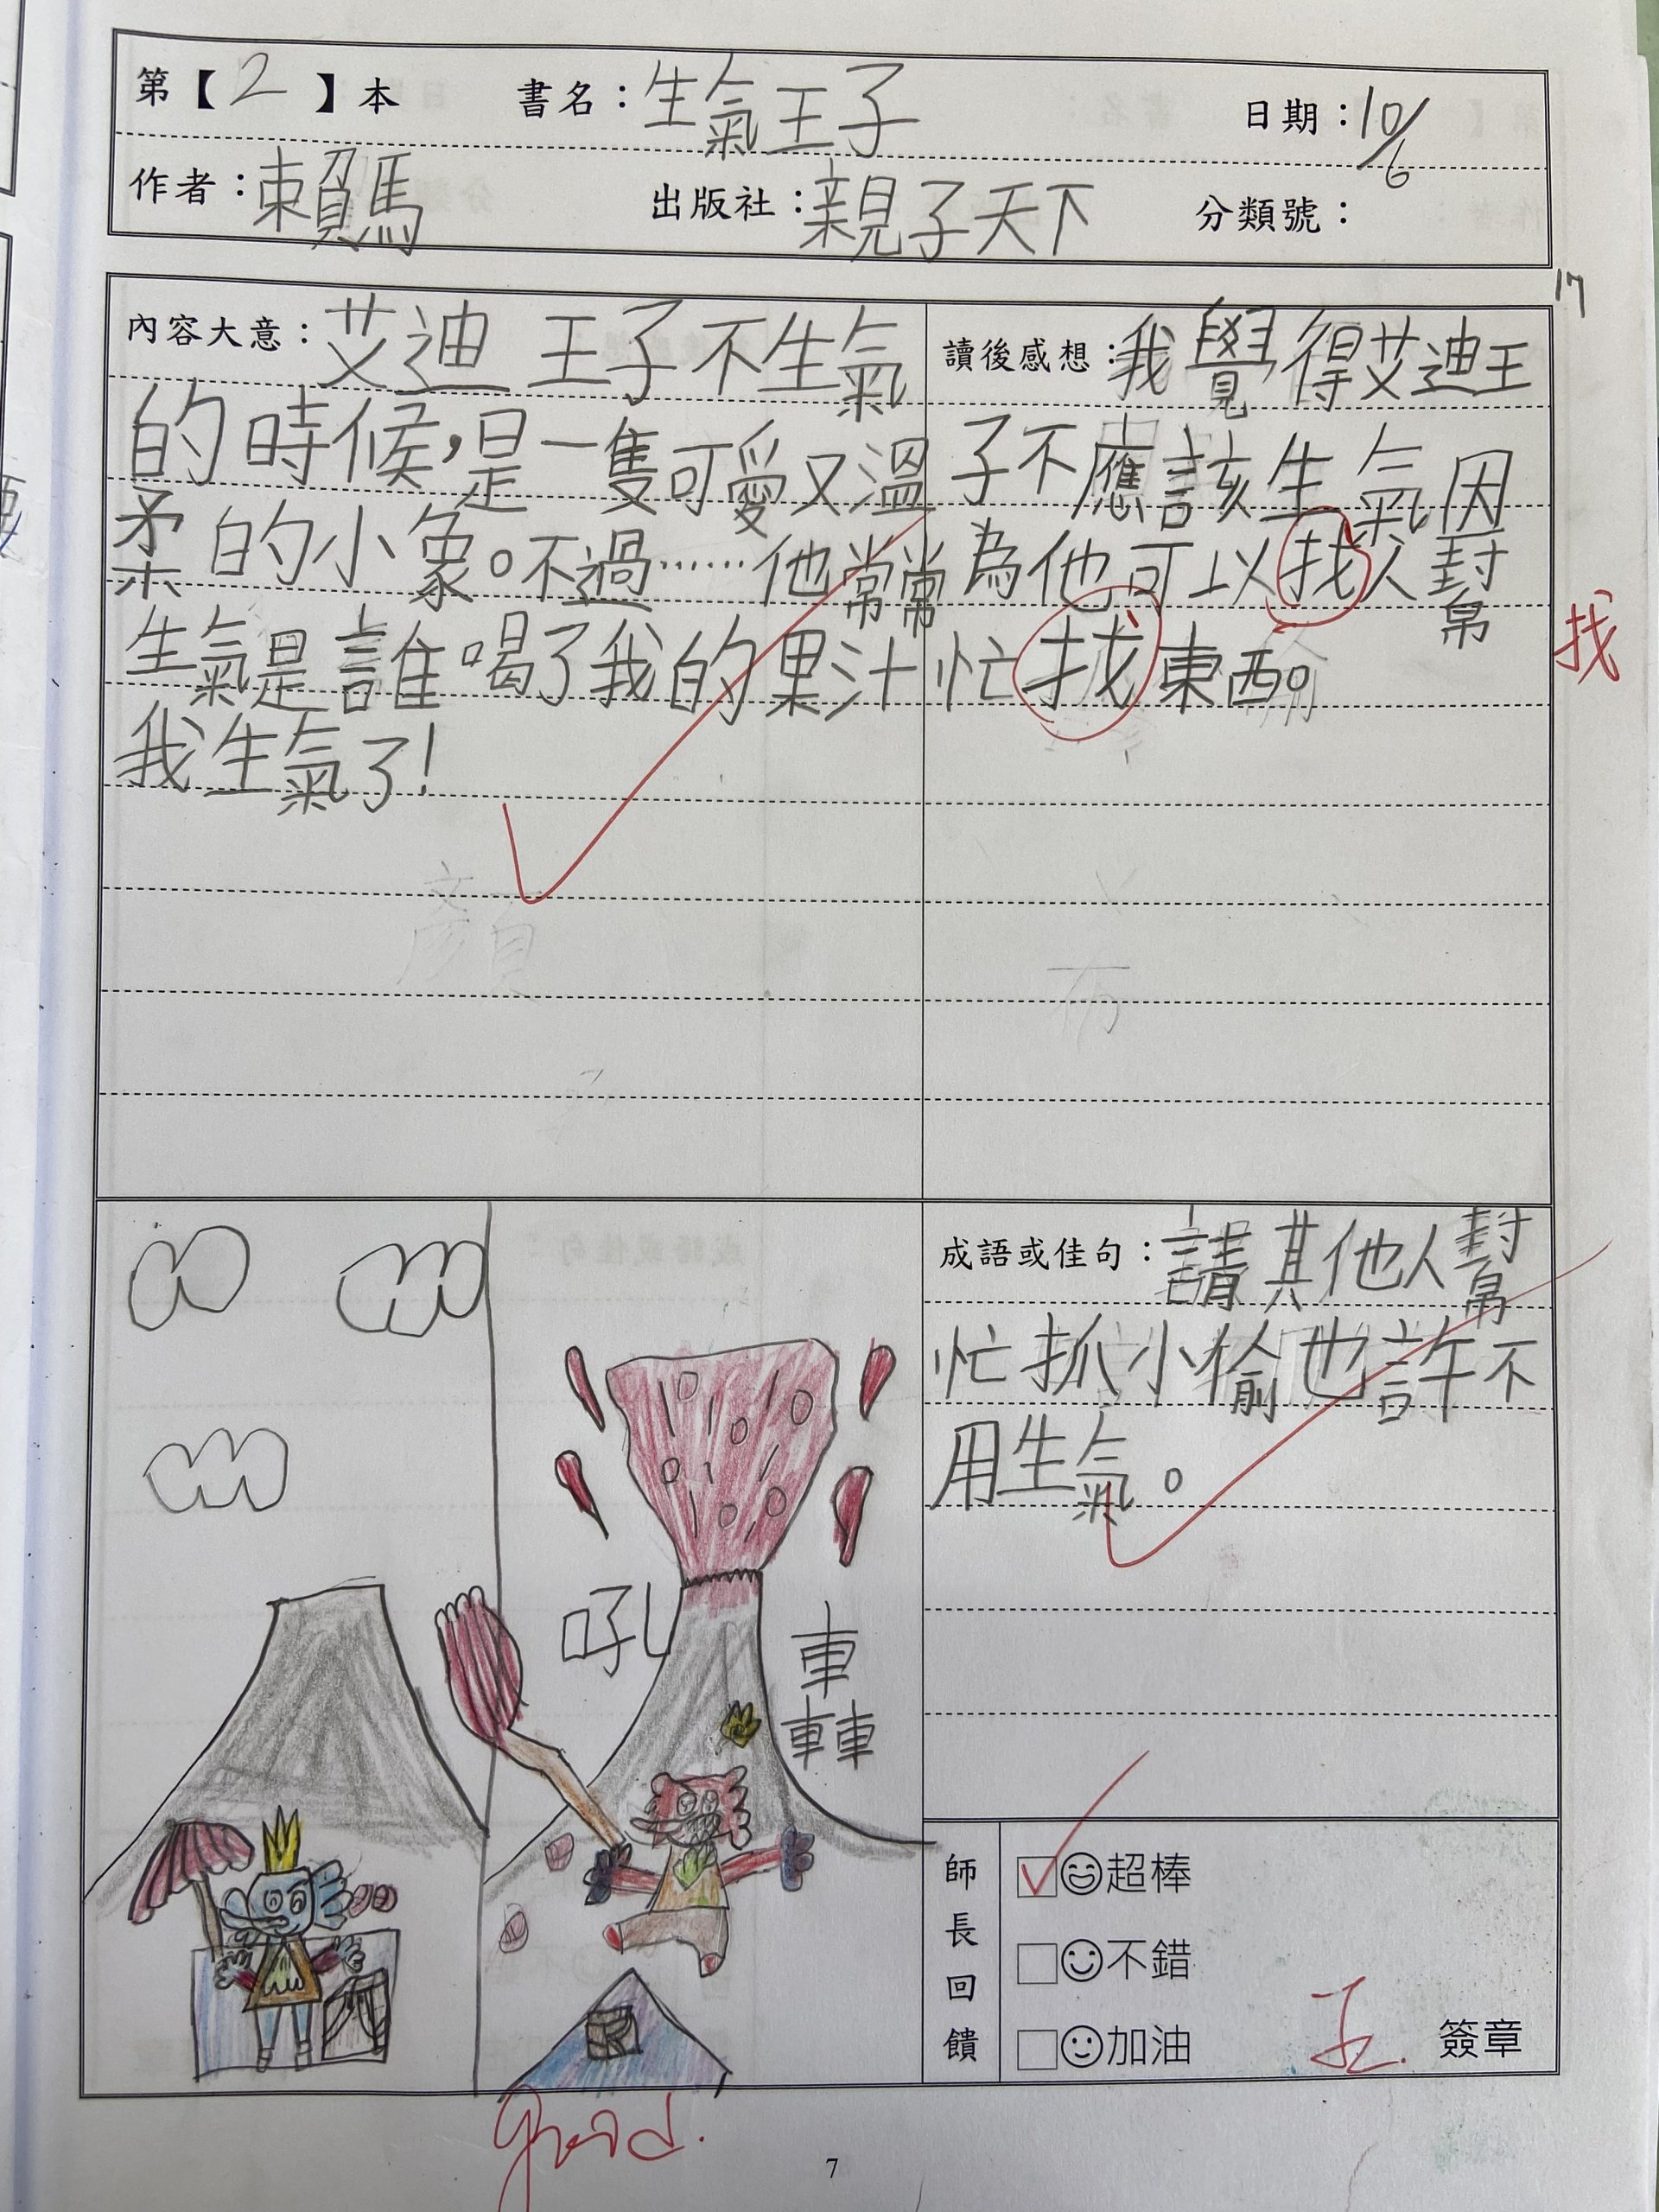 第【2】本 書名：生氣王子 日期：10/6
作者：賴馬 出版社：親子天下 分類號：
17
內容大意：艾迪王子不生氣
的時候，是一隻可愛又溫
柔的小象。不過……他常常
生氣是誰喝了我的果汁
我生氣了！
讀後感想：我覺得艾迪王
子不應該生氣因
為他可以找人幫
忙找東西。
找
成語或佳句：請其他人幫
忙抓小偷也許不
用生氣。
吼
轟
師長回饋
超棒
不錯
加油
簽章
Good.
7